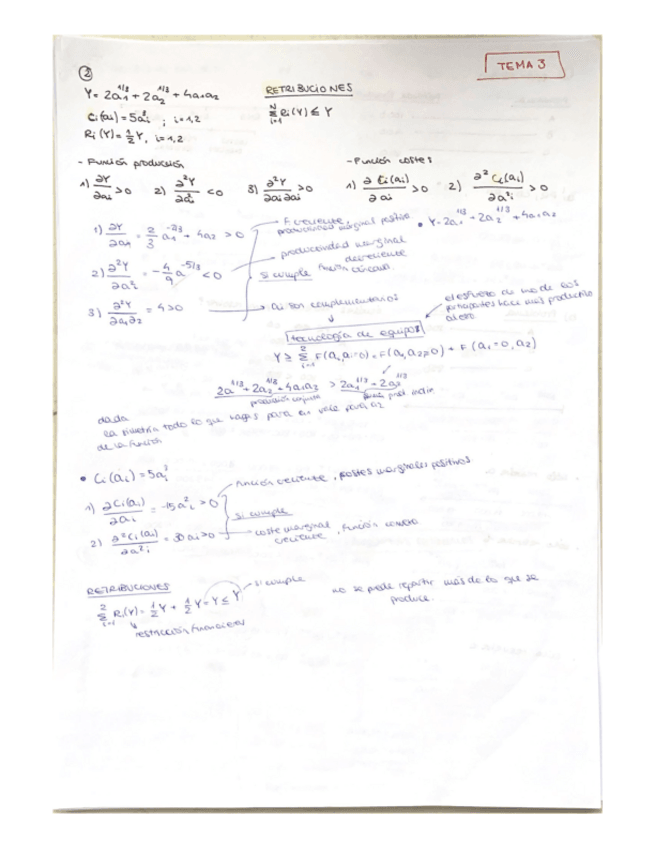 TEMA 3
②
Y= 2a₁^1/3 + 2a₂^1/3 + 4a₁a₂
RETRIBUCIONES
Ci(ai) = 5ai³ ; i=1,2
Σ Ri(Y) ≤ Y
Ri(Y) = ½Y, i=1,2
- Función producción
- Función costes
1) ∂Y/∂ai >0 2) ∂²Y/∂ai² <0 3) ∂²Y/∂ai∂aj >0
1) ∂Ci(ai)/∂ai >0 2) ∂²Ci(ai)/∂a²i >0
1) ∂Y/∂a₁ = 2/3 a₁^-2/3 + 4a₂ >0
F. creciente, productividad marginal positiva
• Y= 2a₁^1/3 + 2a₂^1/3 + 4a₁a₂
2) ∂²Y/∂a² = -4/9 a^-5/3 <0
productividad marginal decreciente
si cumple función cóncava
3) ∂²Y/∂a₁∂₂ = 4>0
ai son complementarios
el esfuerzo de uno de los participantes hace más productivo al otro
tecnología de equipos
Y ≥ Σ F(ai, aj=0) = F(a₁, a₂=0) + F(a₁=0, a₂)
2a^1/3 + 2a₂^1/3 + 4a₁a₂ > 2a₁^1/3 + 2a₂^1/3
producción conjunta
prod indiv
dada
la simetría todo lo que hagas para a₁ vale para a2
de la función
• Ci(ai) = 5ai³
función creciente, costes marginales positivos
1) ∂Ci(ai)/∂ai = 15a²i >0
si cumple
2) ∂²Ci(ai)/∂a²i = 30ai>0
coste marginal creciente, función convexa
RETRIBUCIONES
si cumple
Σ Ri(Y) = ½Y + ½Y = Y ≤ Y
no se puede repartir más de lo que se produce.
restricción financiera